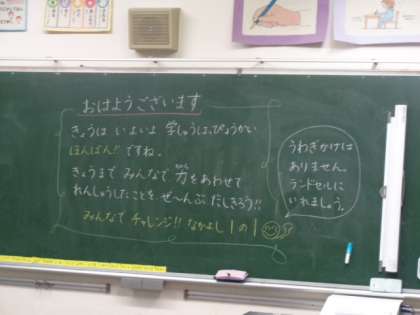 おはようございます
きょうは いよいよ 学しゅうはっぴょうかい
ほんばん!! ですね。
きょうまで みんなで 力をあわせて
れんしゅうしたことを ぜ〜んぶ だしきろう!!
みんなで チャレンジ!! なかよし 1の1
うわぎかけは
ありません。
ランドセルに
いれましょう。